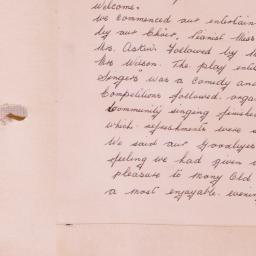 Welcome.
We commenced our entertain
by our Choir, Pianist Miss
Mrs. Askin Followed by M
Mrs Wilson. The play entit
Singers was a Comedy and
Competitions followed. orga
Community singing finished
which refreshments were s
We said our Goodbyes
feeling we had given
pleasure to many Old
a most enjoyable evening